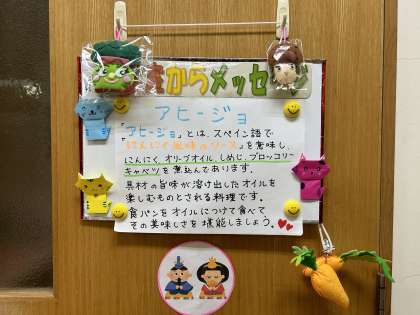 からメッセージ
アヒージョ
「アヒージョ」とは、スペイン語で
「にんにく風味のソース」を意味し、
にんにく、オリーブオイル、しめじ、ブロッコリー
キャベツを煮込んであります。
具材の旨味が溶け出したオイルを
楽しむものとされる料理です。
食パンをオイルにつけて食べて
その美味しさを堪能しましょう。